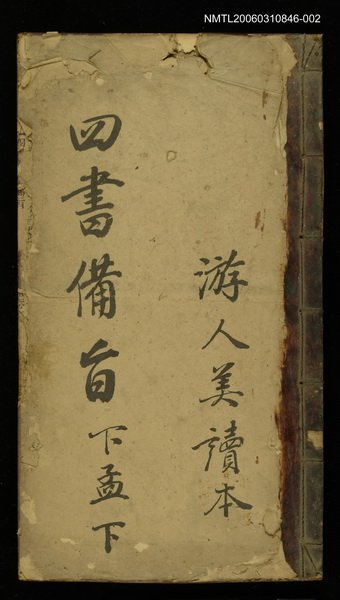 NMTL20060310846-002
游人美讀本
四書備旨下孟下